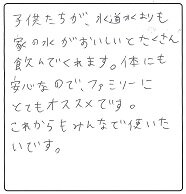 子供たちが、水道水よりも
家の水がおいしいとたくさん
飲んでくれます。体にも
安心なので、ファミリーに
とてもオススメです。
これからもみんなで使いた
いです。